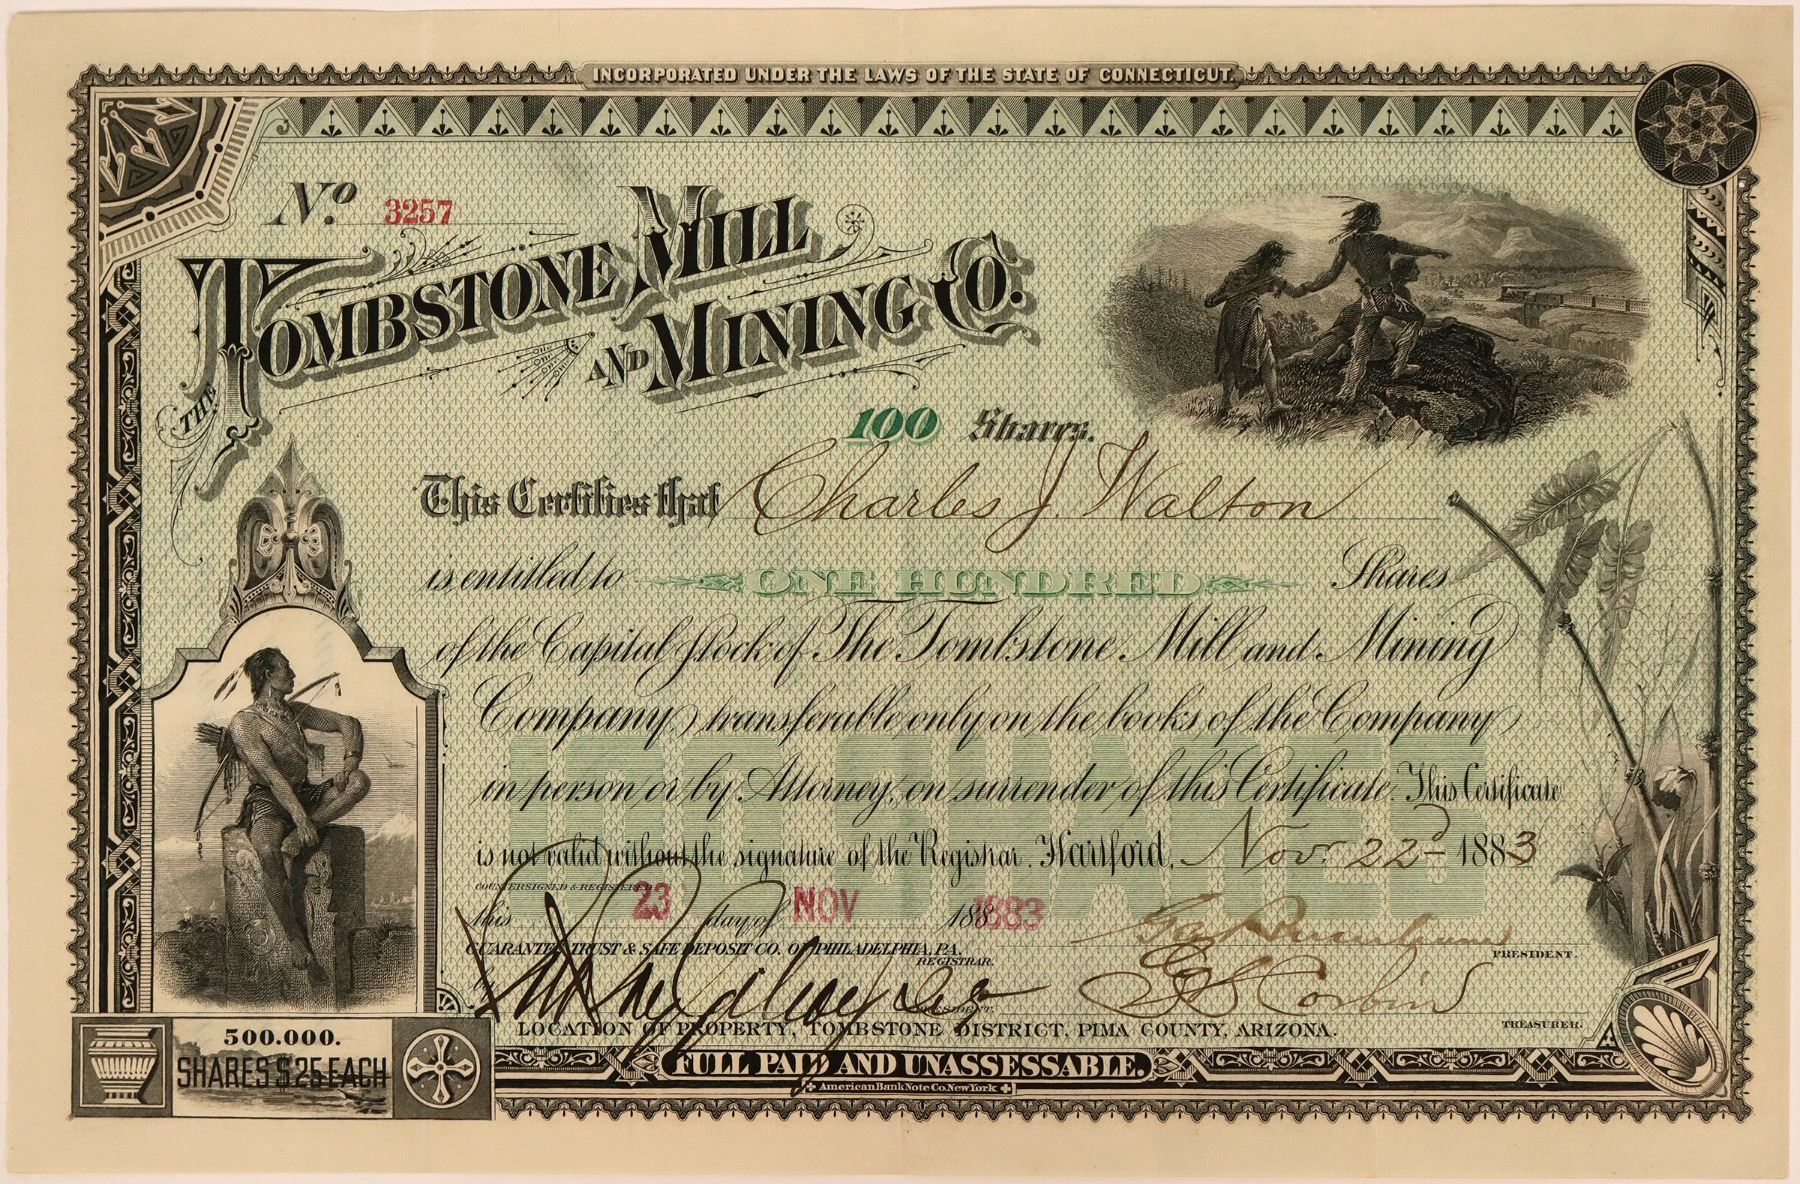 INCORPORATED UNDER THE LAWS OF THE STATE OF CONNECTICUT.
No. 3257
THE TOMBSTONE MILL
AND MINING CO.
100 Shares.
This Certifies that Charles J. Walton
is entitled to ONE HUNDRED Shares
of the Capital Stock of The Tombstone Mill and Mining
Company, transferable only on the books of the Company
in person or by Attorney, on surrender of this Certificate. This Certificate
is not valid without the signature of the Registrar. Hartford, Nov. 22d 1883
100 SHARES
COUNTERSIGNED & REGISTERED
this 23 day of NOV 188 1883
GUARANTEE TRUST & SAFE DEPOSIT CO. OF PHILADELPHIA, PA.
REGISTRAR.
PRESIDENT.
PRESIDENT.
Corbin
TREASURER.
LOCATION OF PROPERTY, TOMBSTONE DISTRICT, PIMA COUNTY, ARIZONA.
500.000.
SHARES $25 EACH
FULL PAID AND UNASSESSABLE.
American Bank Note Co. New York